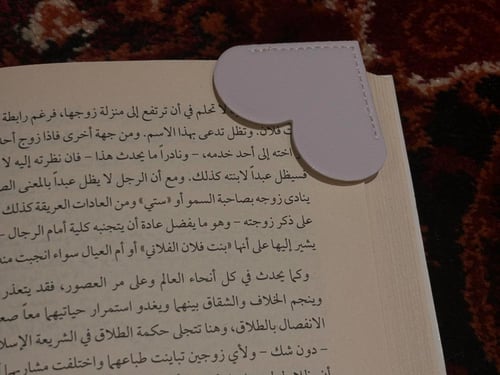 لا تحلم في أن ترتفع إلى منزلة زوجها، فرغم رابطة
ت فلان. وتظل تدعى بهذا الاسم. ومن جهة أخرى فاذا زوج أحد
اخته إلى أحد خدمه، - ونادراً ما يحدث هذا - فان نظرته إليه لا
فسيظل عبداً لابنته كذلك. ومع أن الرجل لا يظل عبداً بالمعنى الص
ينادى زوجه بصاحبة السمو أو «ستي» ومن العادات العريقة كذلك
على ذكر زوجته - وهو ما يفضل عادة أن يتجنبه كلية أمام الرجال -
يشير إليها على أنها «بنت فلان الفلاني» أو أم العيال سواء انجبت منه
وكما يحدث في كل أنحاء العالم وعلى مر العصور، فقد يتعذر
وينجم الخلاف والشقاق بينهما ويغدو استمرار حياتيهما معاً صع
الانفصال بالطلاق، وهنا تتجلى حكمة الطلاق في الشريعة الإسلا
- دون شك - ولأي زوجين تباينت طباعهما واختلفت مشاربهما